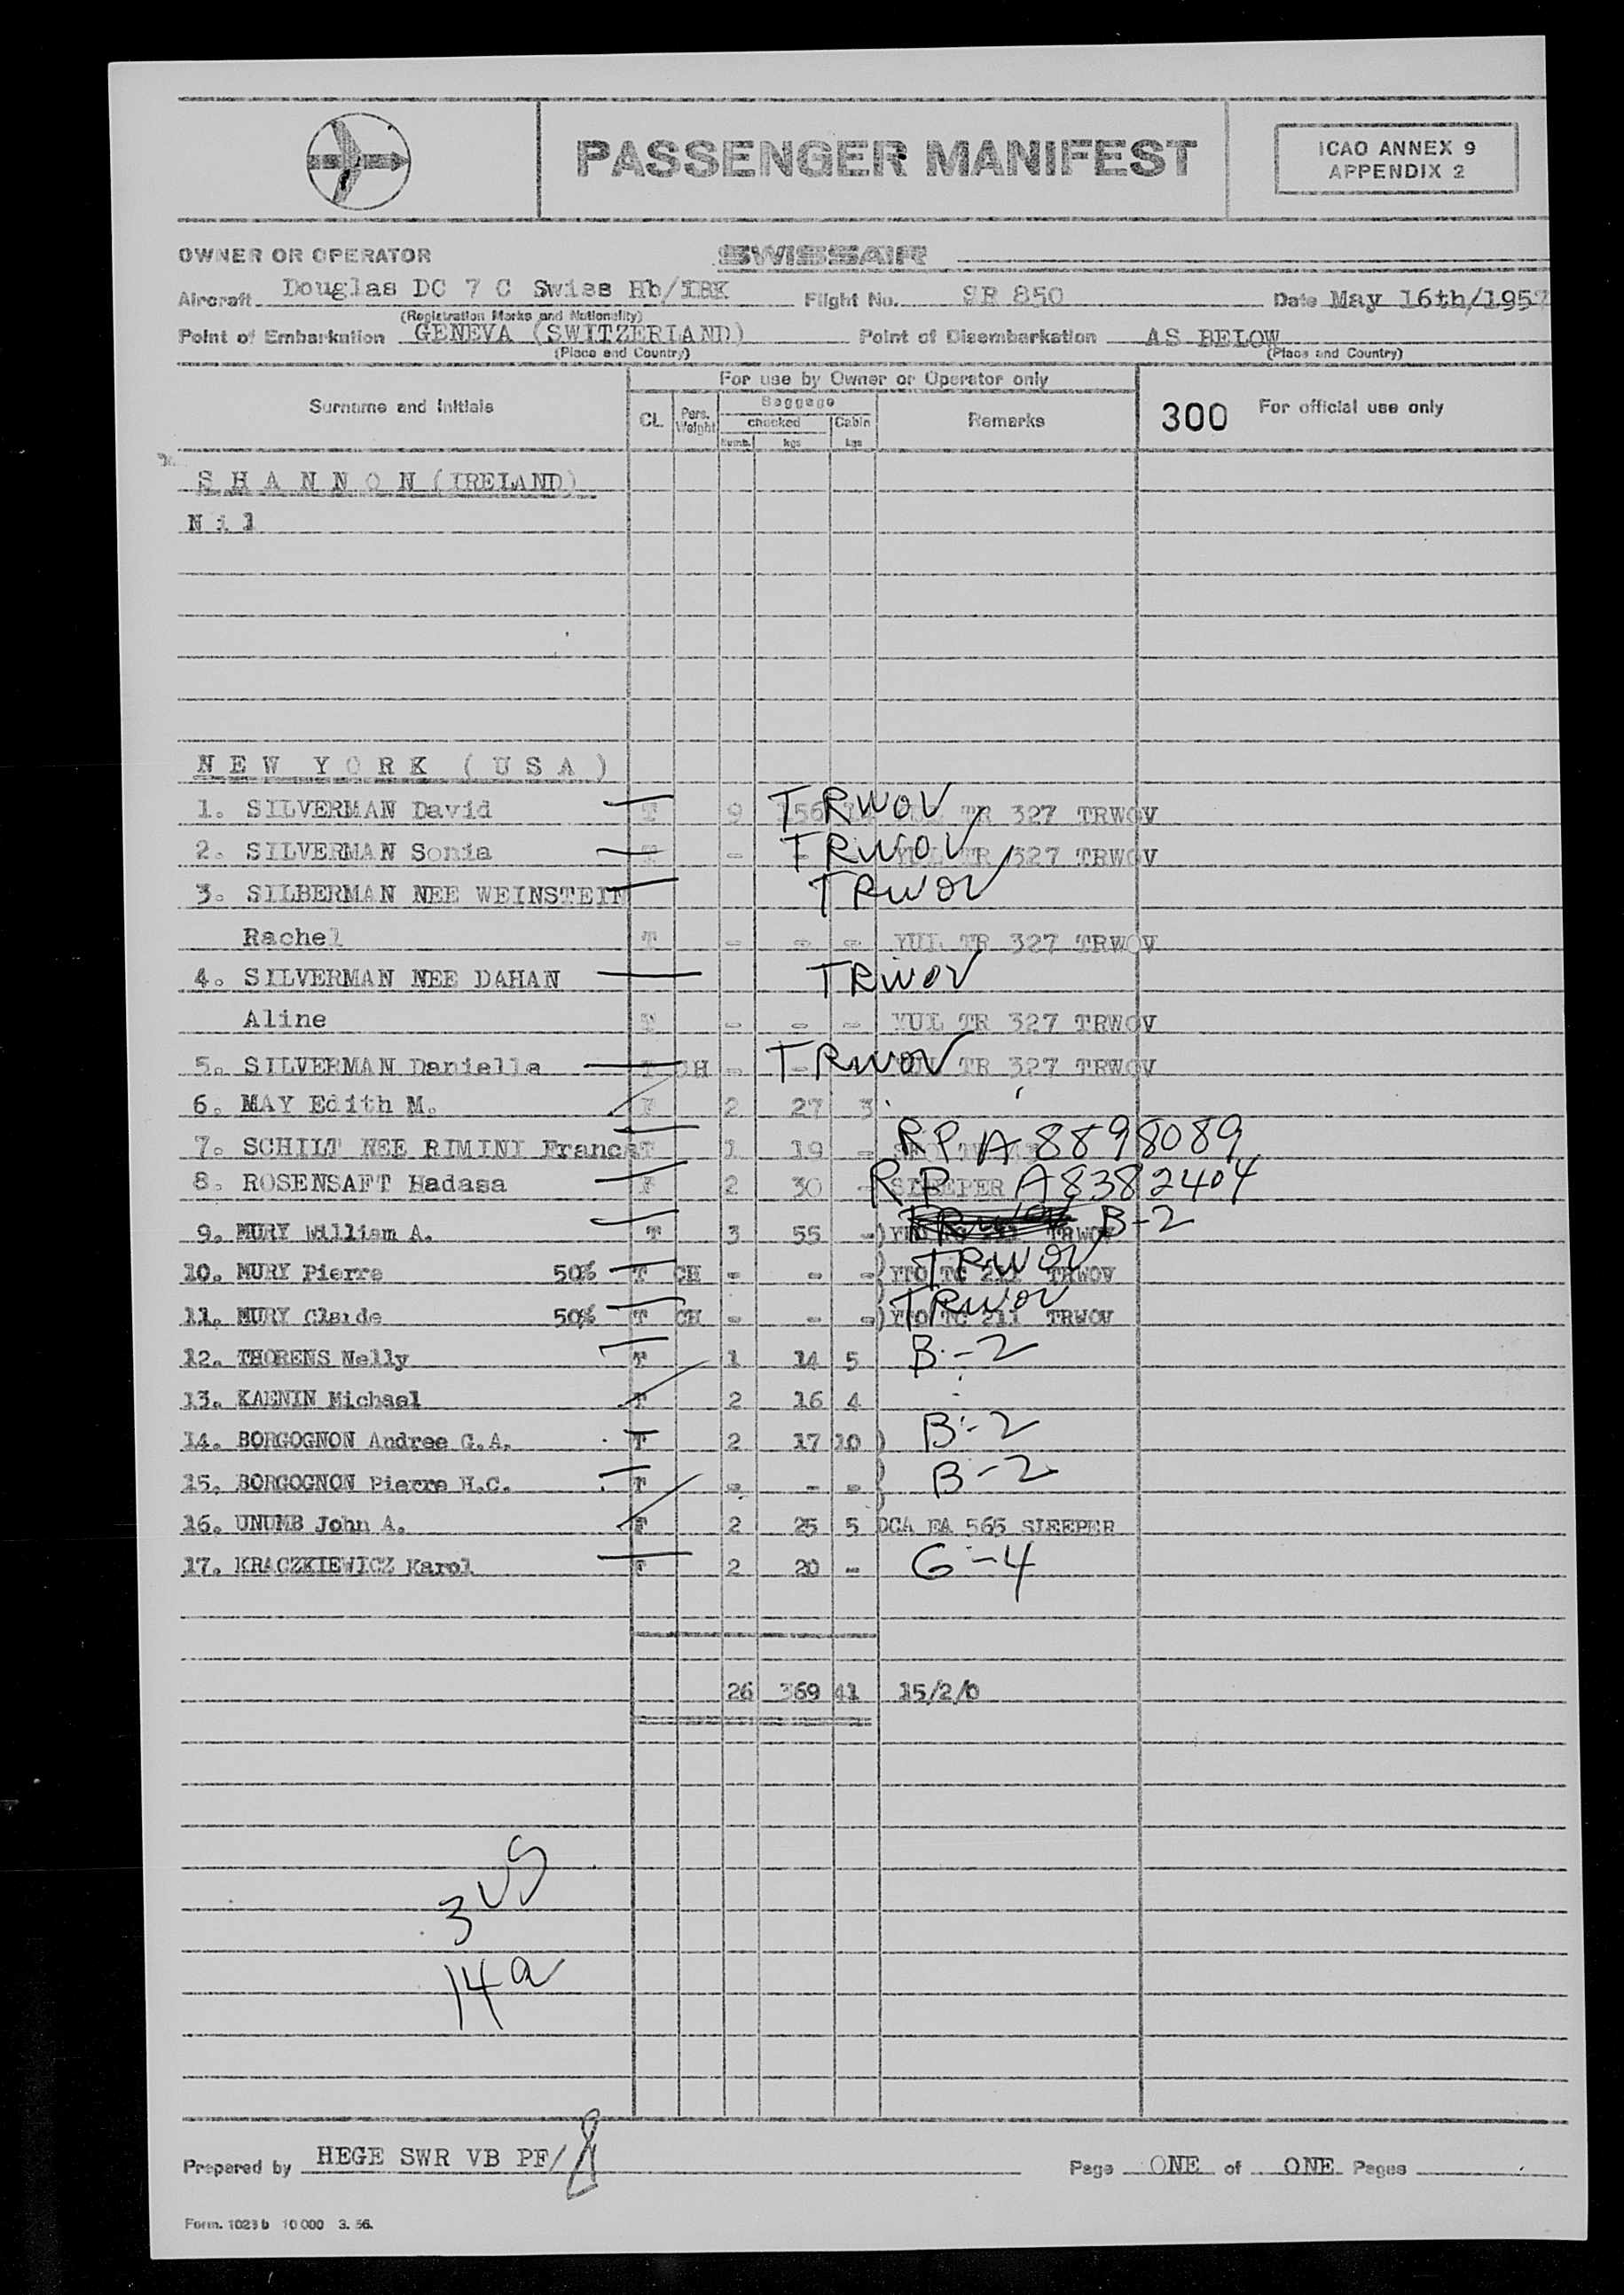 PASSENGER MANIFEST
ICAO ANNEX 9
APPENDIX 2
OWNER OR OPERATOR SWISSAIR
Aircraft Douglas DC 7 C Swiss Hb/IBK Flight No. SR 850 Date May 16th/1957
(Registration Marks and Nationality)
Point of Embarkation GENEVA (SWITZERLAND) Point of Disembarkation AS BELOW
(Place and Country) (Place and Country)
For use by Owner or Operator only
Surname and Initials CL. Pers. Weight Baggage checked Numb. kgs Cabin kgs Remarks 300 For official use only
S H A N N O N (IRELAND)
N i l
N E W Y O R K ( U S A )
1. SILVERMAN David T 9 156 TRWOV TR 327 TRWOV
2. SILVERMAN Sonia T - - TRWOV YUL TR 327 TRWOV
3. SILBERMAN NEE WEINSTEIN TRWOV
Rachel T - - - YUL TR 327 TRWOV
4. SILVERMAN NEE DAHAN TRWOV
Aline T - - - YUL TR 327 TRWOV
5. SILVERMAN Daniella T CH - - TRWOV TR 327 TRWOV
6. MAY Edith M. F 2 27 3
7. SCHILT NEE RIMINI Franca T 1 19 - RP A8898089
8. ROSENSAFT Hadasa F 2 30 - SLEEPER RP A8382404
9. MURY William A. T 3 55 -) YTO TC 211 TRWOV B-2
10. MURY Pierre 50% T CH - - -) YTO TC 211 TRWOV TRWOV
11. MURY Claude 50% T CH - - -) YTO TC 211 TRWOV TRWOV
12. THORENS Nelly T 1 14 5 B-2
13. KAENIN Michael T 2 16 4
14. BORGOGNON Andree G.A. T 2 17 10 ) B-2
15. BORGOGNON Pierre H.C. T - - - ) B-2
16. UNUMB John A. 2 25 5 DCA EA 565 SLEEPER
17. KRACZKIEWICZ Karol T 2 20 - G-4
26 369 41 15/2/0
3 US
14 a
Prepared by HEGE SWR VB PF/ Page ONE of ONE Pages
Form. 1023 b 10 000 3. 56.